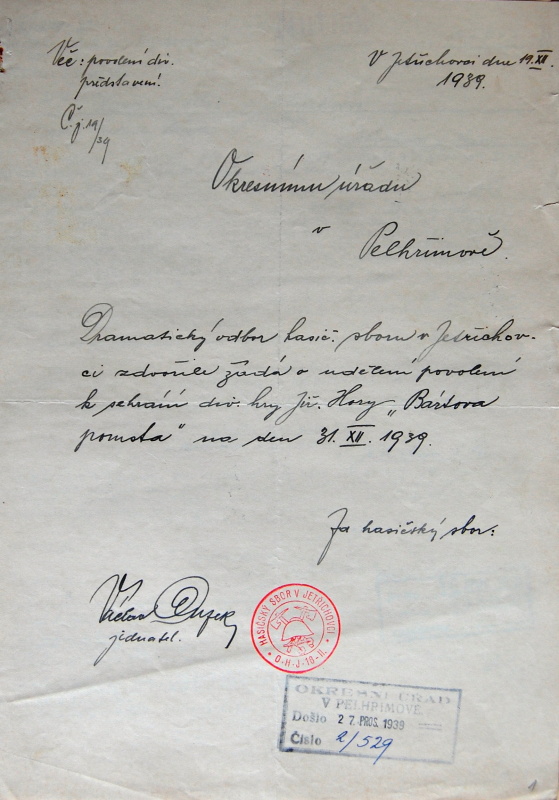 Věc: povolení div.
představení.
Č.j. 19/39
V Jetřichovci dne 19. XII.
1939.
Okresnímu úřadu
v
Pelhřimově.
Dramatický odbor hasič. sboru v Jetřichov-
ci zdvořile žádá o udělení povolení
k sehrání div. hry Jiř. Hory „Bártova
pomsta" na den 31. XII. 1939.
Za hasičský sbor:
Václav
jednatel.
HASIČSKÝ SBOR V JETŘICHOVCI
O-H-J-18-II.
OKRESNÍ ÚŘAD
V PELHŘIMOVĚ
Došlo 27. PROS. 1939
Číslo 2/529
1